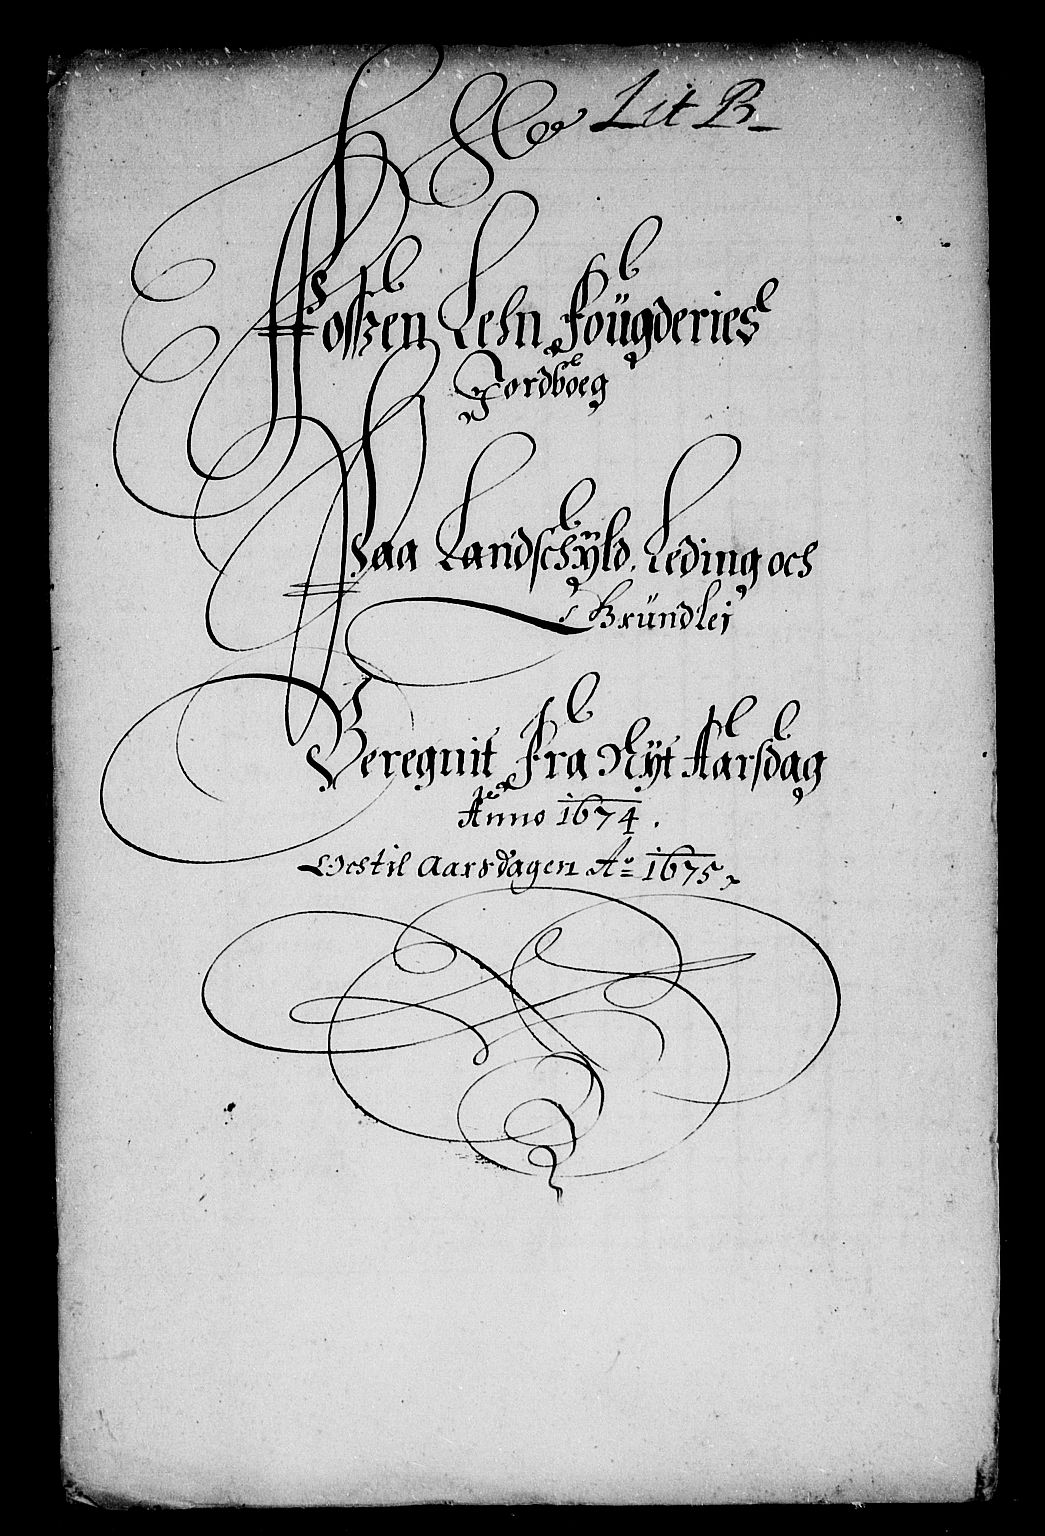 Lit B
Fosszen Lehn Foügderies
Jordboeg
Paa Landschÿld, Leding och
Gründlej
Beregnit Fra Nÿt Aarsdag
Anno 1674.
Och til Aarsdagen Ao 1675